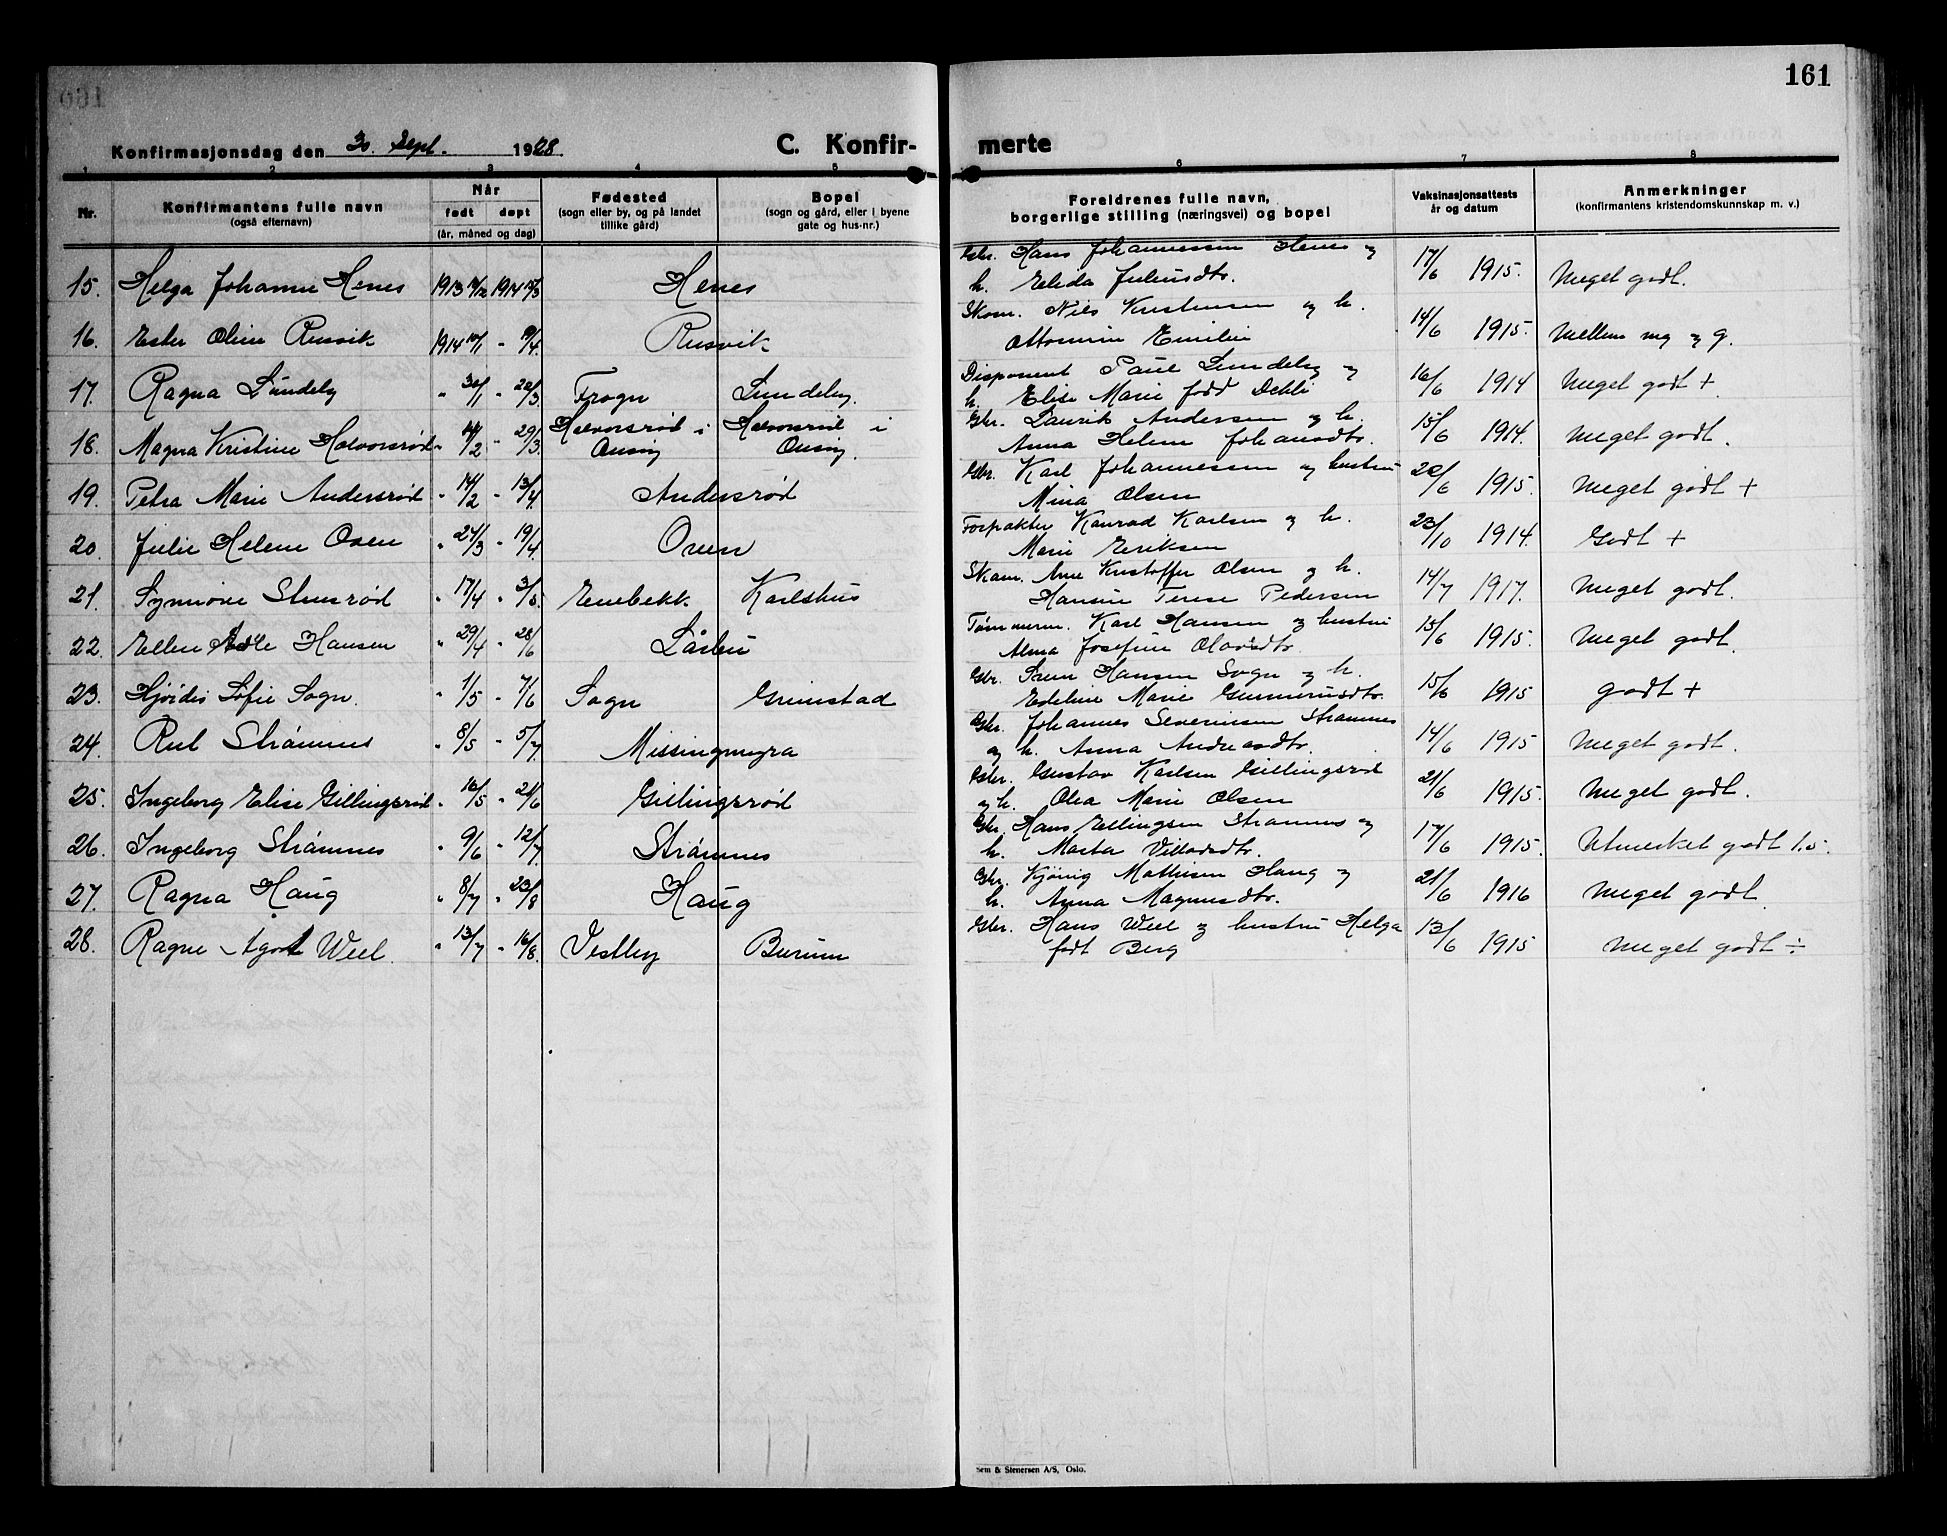 161
Konfirmasjonsdag den 30. Sept. 1928
C. Konfir-
merte
1 2 3 4 5 6 7 8
Nr.
Konfirmantens fulle navn
(også efternavn)
Når
født døpt
(år, måned og dag)
Fødested
(sogn eller by, og på landet
tillike gård)
Bopel
(sogn og gård, eller i byene
gate og hus-nr.)
Foreldrenes fulle navn,
borgerlige stilling (næringsvei) og bopel
Vaksinasjonsattests
år og datum
Anmerkninger
(konfirmantens kristendomskunnskap m. v.)
Gbr. Hans Johannessen Henes og
15. Helga Johanne Henes 1913 1914 Henes h. Elida Juliusdtr. 17/6 1915. Meget godt.
Skom. Nils Kristensen og h.
16. Ester Oline Rusvik 1914 - 9/4. Rusvik Ottomine Emilie 14/6 1915. Mellem mg og g.
Disponent Paul Lundeby og
17. Ragna Lundeby " 30/1 - 20/3. Frogn Lundeby. h. Elise Marie född Dehli 16/6 1914 Meget godt +
Gbr. Laurits Andersen og h.
18. Magna Kristine Halvorsrød " 14/2 - 29/3. Halvorsrød i Onsøy Halvorsrød i Onsøy. Anna Helene Johansdtr. 15/6 1914. Meget godt.
Gbr. Karl Johannessen og hustru
19. Petra Marie Andersrød " 14/2 - 13/4 Andersrød Mina Olsen 20/6 1915. Meget godt +
Forpakter Konrad Karlsen og h.
20. Julie Helene Oven " 24/3 - 19/4 Oven Marie Eriksen 23/10 1914. Godt +
Skom. Arne Kristoffer Olsen og h.
21. Synnøve Stensrød " 17/4 - 3/5. Enebakk Karlshus Hansine Terese Pedersen 14/7 1917. Meget godt.
Tømmerm. Karl Hansen og hustru
22. Ellen Hansen " 29/4 - 28/6 Låsbu Alma Josefine Olavsdtr. 15/6 1915. Meget godt.
Gbr. Hansen Sogn og h.
23. Hjördis Sofie Sogn. " 1/5 - 7/6 Sogn Grimstad Edeline Marie Gunnerusdtr. 15/6 1915 godt +
Gbr. Johannes Severinsen Strømnes
24. Rut Strömnes " 8/5 - 5/7. Missingmyra og h. Anna Andreasdtr. 14/6 1915 Meget godt.
Gbr. Gustav Karlsen Gillingsrød
25. Ingeborg Elise Gillingsrød " 16/5 - 21/6 Gillingsrød og h. Olea Marie Olsen 21/6 1915. Meget godt.
Gbr. Hans Ellingsen Strømnes og
26. Ingeborg Strömnes " 9/6 - 12/7 Strömnes h. Marta Villadsdtr. 17/6 1915. Utmerket godt 1.5.
Gbr. Kjönig Mathisen Haug og
27. Ragna Haug " 8/7 - 23/8 Haug h. Anna Magnusdtr. 21/6 1916 Meget godt
Gbr. Hans Weel og hustru Helga
28. Ragne Agot Weel. " 13/7 - 16/8. Vestby Burum født Berg 13/6 1915 Meget godt ÷
Sem & Stenersen A/S, Oslo.